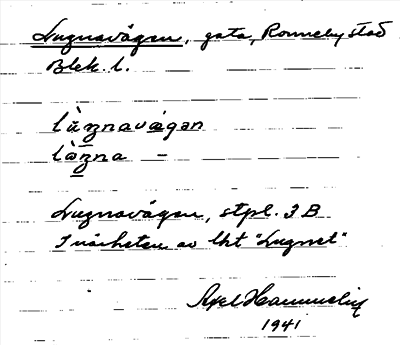 Lugnavägen, gata, Ronneby stad
Blek. l.
lùŋnavä́gən
lòŋna –
Lugnavägen, stpl. 3 B
I närheten av lht "Lugnet"
Axel Hammelin
1941